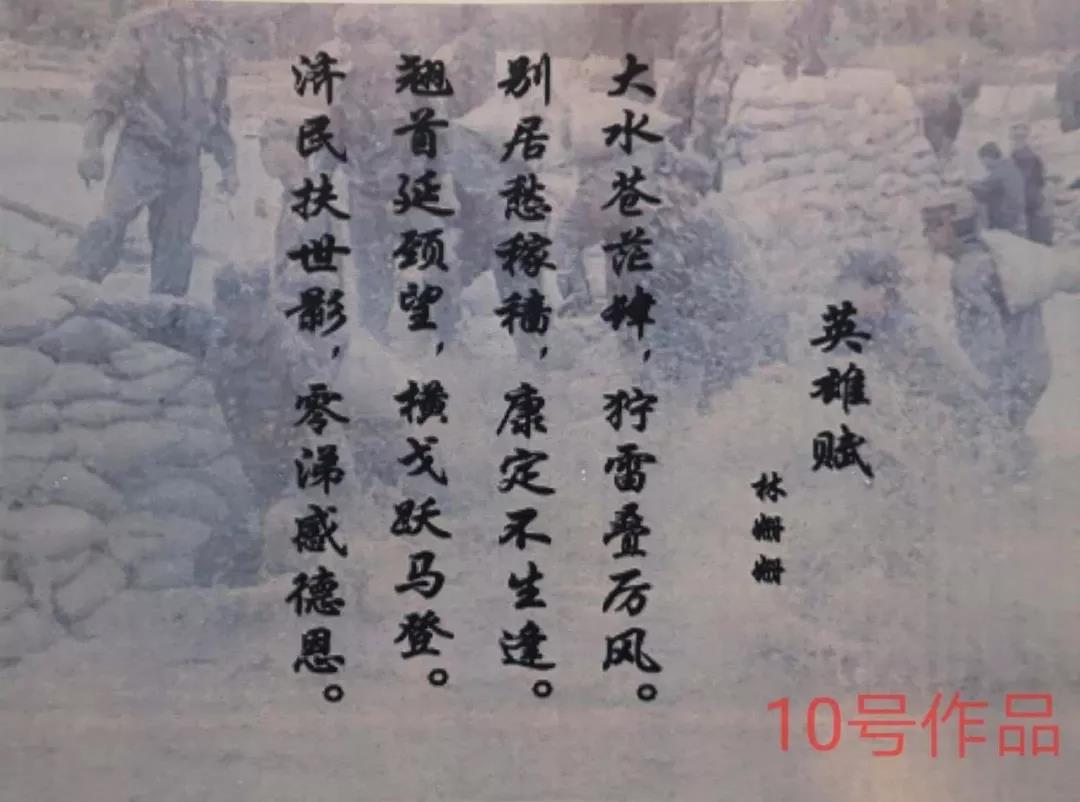 英雄赋
林姗姗
大水苍茫肆,狞雷叠厉风。
别居愁稼穑,康定不生逢。
翘首延颈望,横戈跃马登。
济民扶世影,零涕感德恩。
10号作品